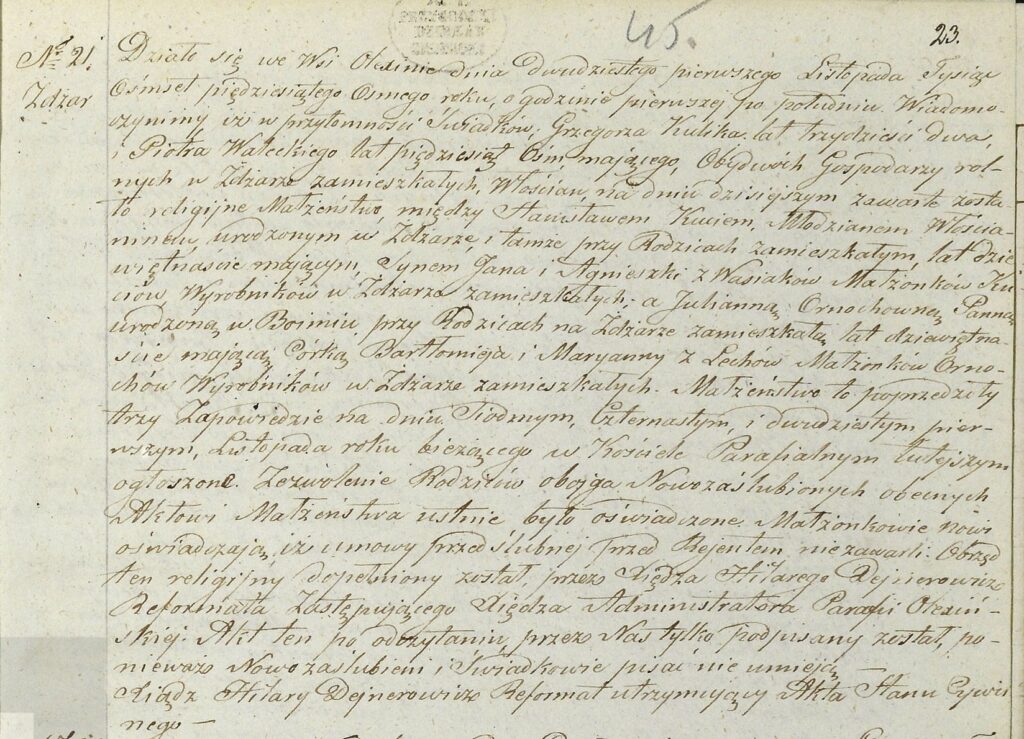 45.
23.
Nr 21.
Zdżar
Działo się we Wsi Oleksinie dnia dwudziestego pierwszego Listopada Tysiąc
Ośmset piędziesiątego Osmego roku, o godzinie pierwszej po południu. Wiadomo
czynimy iż w przytomności Świadków, Grzegorza Kulika lat trzydzieści dwa,
i Piotra Wałeckiego lat piędziesiąt Ośm mającego, Obydwóch Gospodarzy rol-
nych w Zdżarze zamieszkałych, Włościan, na dniu dzisiejszym zawarte zosta-
ło religijne Małżeństwo, między Stanisławem Kuciem, Młodzianem Włościa-
ninem, urodzonym w Zdżarze i tamże przy Rodzicach zamieszkałym, lat dzie
więtnaście mającym, Synem Jana i Agnieszki z Wasiaków Małżonków Ku
ciów Wyrobników w Zdżarze zamieszkałych; a Julianną Ornochowną Panną
urodzoną w Boimiu przy Rodzicach na Zdżarze zamieszkałą, lat dziewiętna-
ście mającą, Córką Bartłomieja i Maryanny z Lechów Małżonków Orno-
chów Wyrobników w Zdżarze zamieszkałych. Małżeństwo to poprzedziły
trzy Zapowiedzie na dniu Siodmym, Czternastym, i dwudziestym pier-
wszym, Listopada roku bieżącego w Kościele Parafialnym tutejszym
ogłoszone. Zezwolenie Rodziców obojga Nowozaślubionych obecnych
Aktowi Małżeństwa ustnie było oświadczone. Małżonkowie nowi
oświadczają, iż umowy przedślubnej przed Rejentem nie zawarli. Obrzęd
ten religijny dopełniony został, przez Xiędza Hilarego Dejnerowicza
Reformata Zastępującego Xiędza Administratora Parafii Oleksiń-
skiej. Akt ten po odczytaniu przez Nas tylko podpisany został, po-
nieważ Nowozaślubieni i Świadkowie pisać nie umieją.
Xiądz Hilary Dejnerowicz Reformat utrzymujący Akta Stanu Cywil
nego —